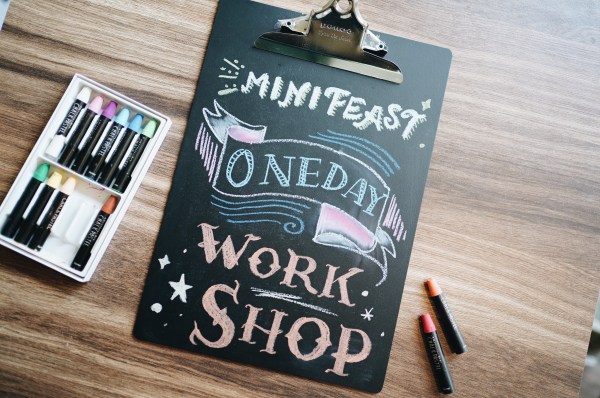 MINIFEAST
ONEDAY
WORK
SHOP